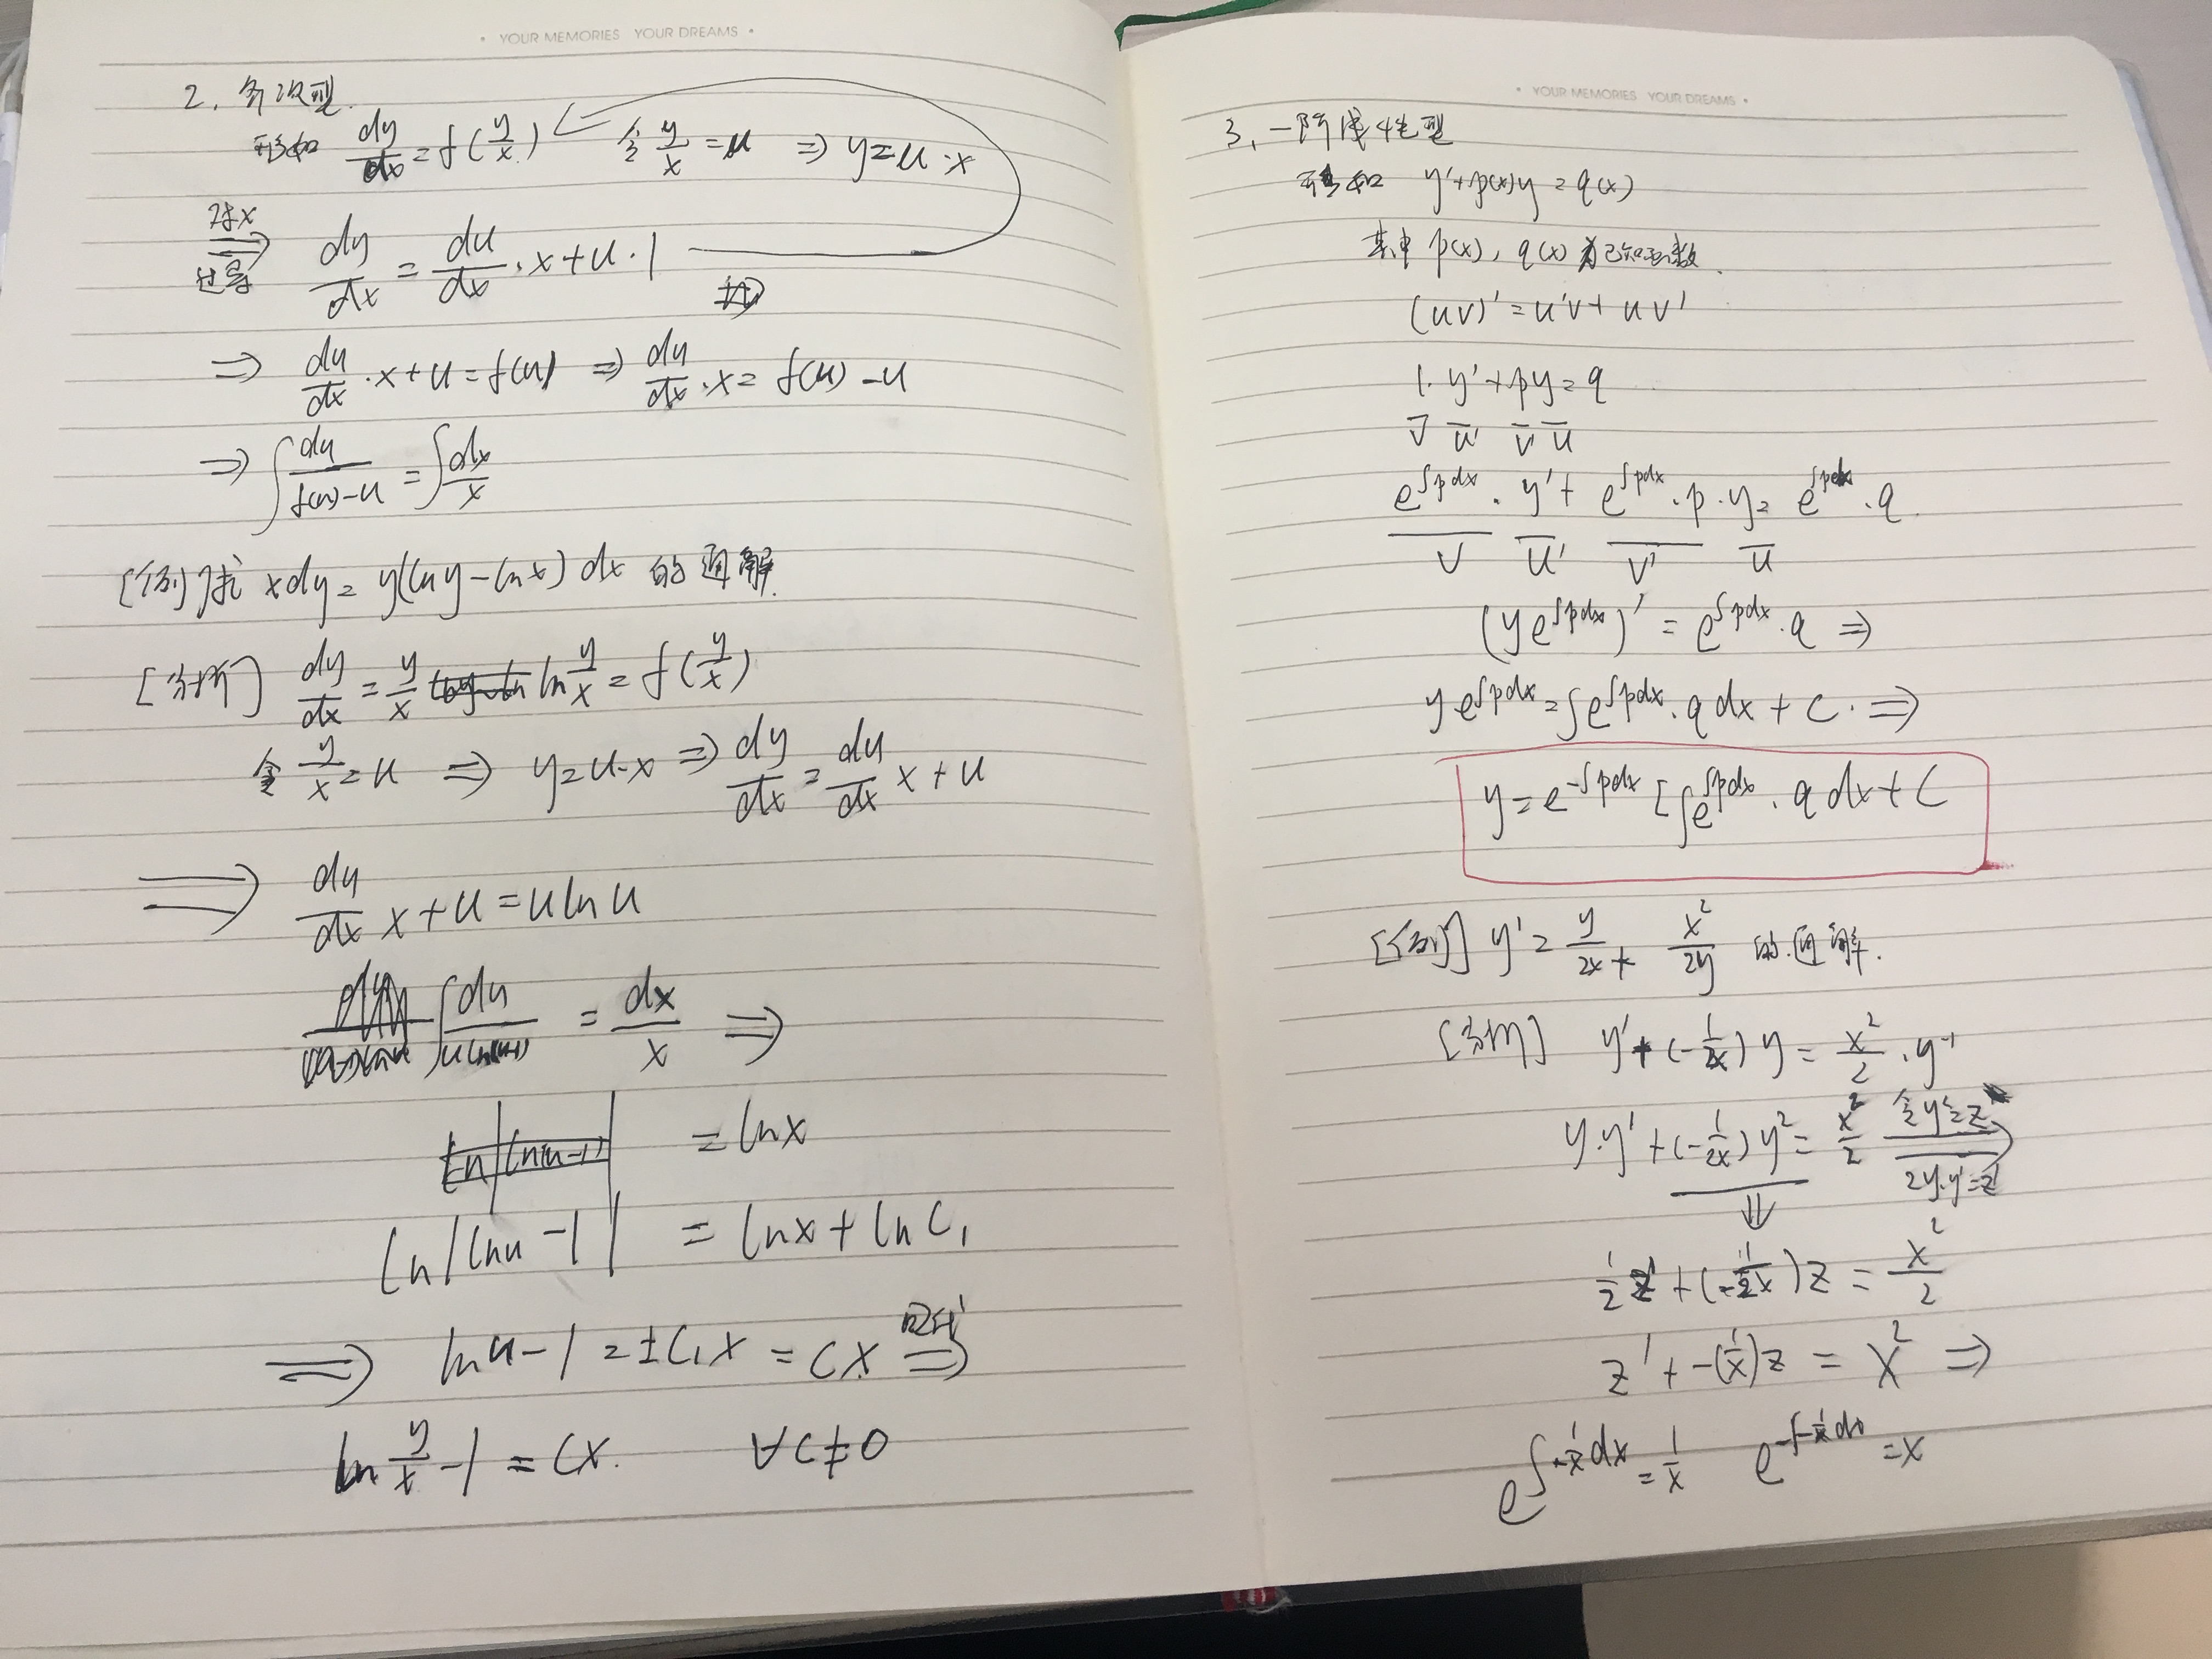 • YOUR MEMORIES YOUR DREAMS •
2. 齐次型.
形如 dy/dx = f(y/x) 令 y/x = u ⇒ y = u·x
对x
⇒ dy/dx = du/dx · x + u · 1
求导
⇒ du/dx · x + u = f(u) ⇒ du/dx · x = f(u) - u
⇒ ∫ du/(f(u)-u) = ∫ dx/x
[例] 求 xdy = y(lny - lnx) dx 的通解.
[分析] dy/dx = y/x ln y/x = f(y/x)
令 y/x = u ⇒ y = u·x ⇒ dy/dx = du/dx x + u
⇒ du/dx x + u = u ln u
∫ du/(u(lnu-1)) = dx/x ⇒
= lnx
ln|lnu - 1| = lnx + ln C₁
⇒ ln u - 1 = ±C₁x = Cx ⇒
ln y/x - 1 = Cx. ∀C≠0
• YOUR MEMORIES YOUR DREAMS •
3, 一阶线性型
形如 y' + p(x)y = q(x)
其中 p(x), q(x) 为已知函数.
(uv)' = u'v + uv'
1·y' + py = q
v u' v' u
e^∫pdx · y' + e^∫pdx · p · y = e^∫pdx · q.
v u' v' u
(y e^∫pdx)' = e^∫pdx · q ⇒
y e^∫pdx = ∫e^∫pdx · q dx + C · ⇒
y = e^-∫pdx [∫e^∫pdx · q dx + C
[例] y' = y/2x + x²/2y 的通解.
[分析] y' + (-1/2x) y = x²/2 · y⁻¹
y·y' + (-1/2x) y² = x²/2 令y²=z 2y·y'=z'
⇓
1/2 z' + (-1/2x) z = x²/2
z' + -(1/x)z = x² ⇒
e^∫-1/x dx = 1/x e^-∫-1/x dx = x